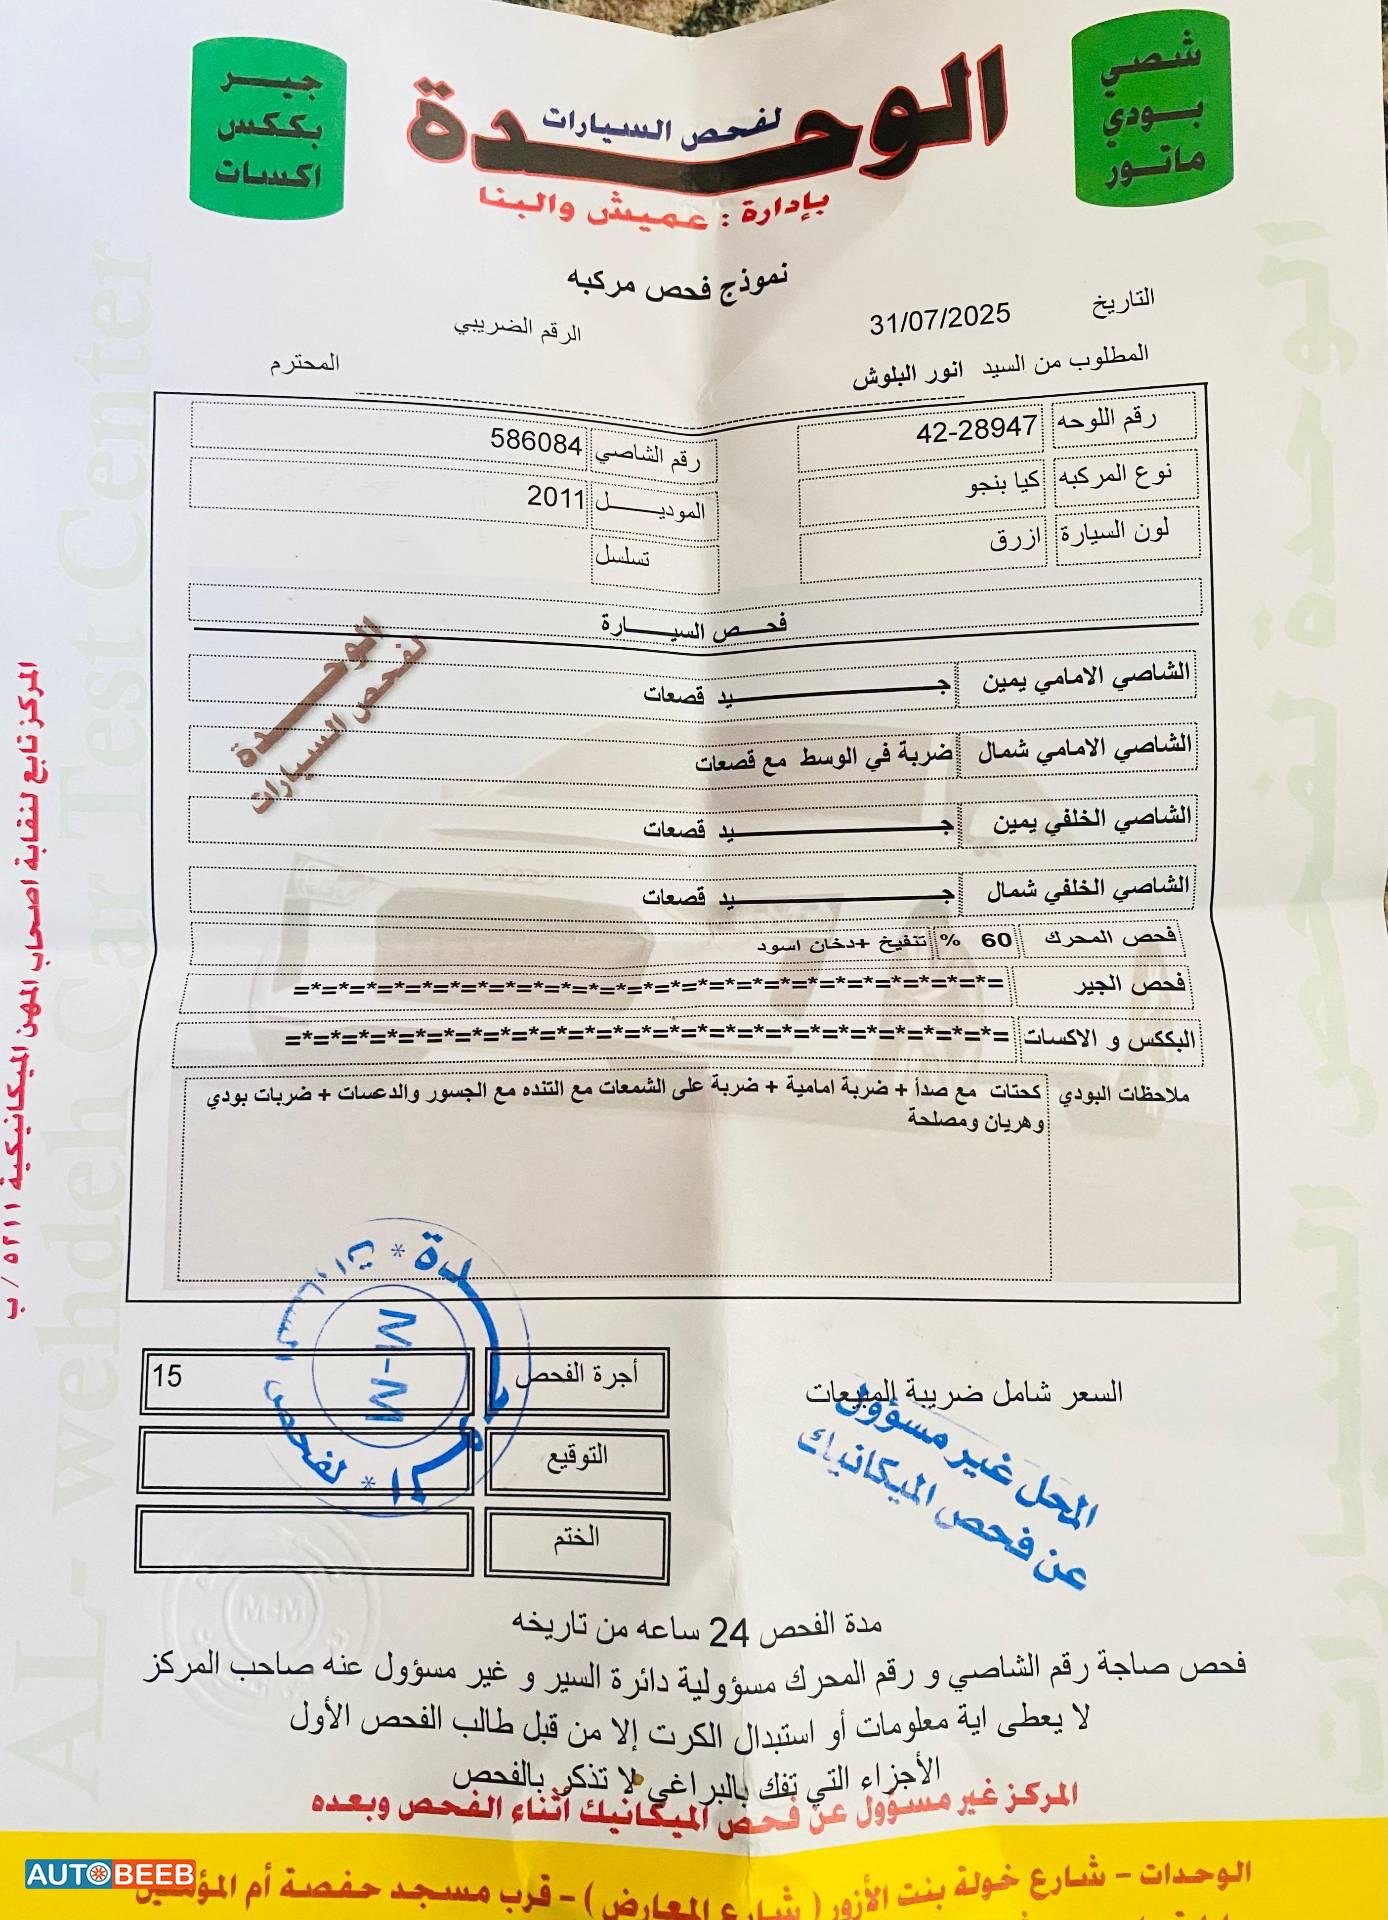 شصي
بودي
ماتور
الوحدة
لفحص السيارات
جير
بككس
اكسات
بإدارة : عميش والبنا
نموذج فحص مركبه
التاريخ 31/07/2025 الرقم الضريبي
المطلوب من السيد انور البلوش المحترم
رقم اللوحه 42-28947 رقم الشاصي 586084
نوع المركبه كيا بنجو الموديـــــل 2011
لون السيارة ازرق تسلسل
فحـــص السيـــــارة
الشاصي الامامي يمين جـــــــــــــيد قصعات
الشاصي الامامي شمال ضربة في الوسط مع قصعات
الشاصي الخلفي يمين جـــــــــــــيد قصعات
الشاصي الخلفي شمال جـــــــــــــيد قصعات
فحص المحرك 60 % تنفيخ +دخان اسود
فحص الجير =*=*=*=*=*=*=*=*=*=*=*=*=*=*=*=*=*=*=*=*=*=*=*=*=*=
البككس و الاكسات =*=*=*=*=*=*=*=*=*=*=*=*=*=*=*=*=*=*=*=*=*=*=*=*=*=
ملاحظات البودي كحتات مع صدأ + ضربة امامية + ضربة على الشمعات مع التنده مع الجسور والدعسات + ضربات بودي
وهريان ومصلحة
الوحـــدة
لفحص السيارات
أجرة الفحص 15
السعر شامل ضريبة المبيعات
التوقيع
الختم
المحل غير مسؤول
عن فحص الميكانيك
M-M
M-M
مدة الفحص 24 ساعه من تاريخه
فحص صاجة رقم الشاصي و رقم المحرك مسؤولية دائرة السير و غير مسؤول عنه صاحب المركز
لا يعطى اية معلومات أو استبدال الكرت إلا من قبل طالب الفحص الأول
الأجزاء التي تفك بالبراغي لا تذكر بالفحص
المركز غير مسؤول عن فحص الميكانيك أثناء الفحص وبعده
الوحدات - شارع خولة بنت الأزور ( شارع المعارض ) - قرب مسجد حفصة أم المؤمنين
المركز تابع لنقابة اصحاب المهن الميكانيكية ٥٢١١ / ب
AL - wehdeh Car Test Center
الوحدة لفحص السيارات
AUTOBEEB